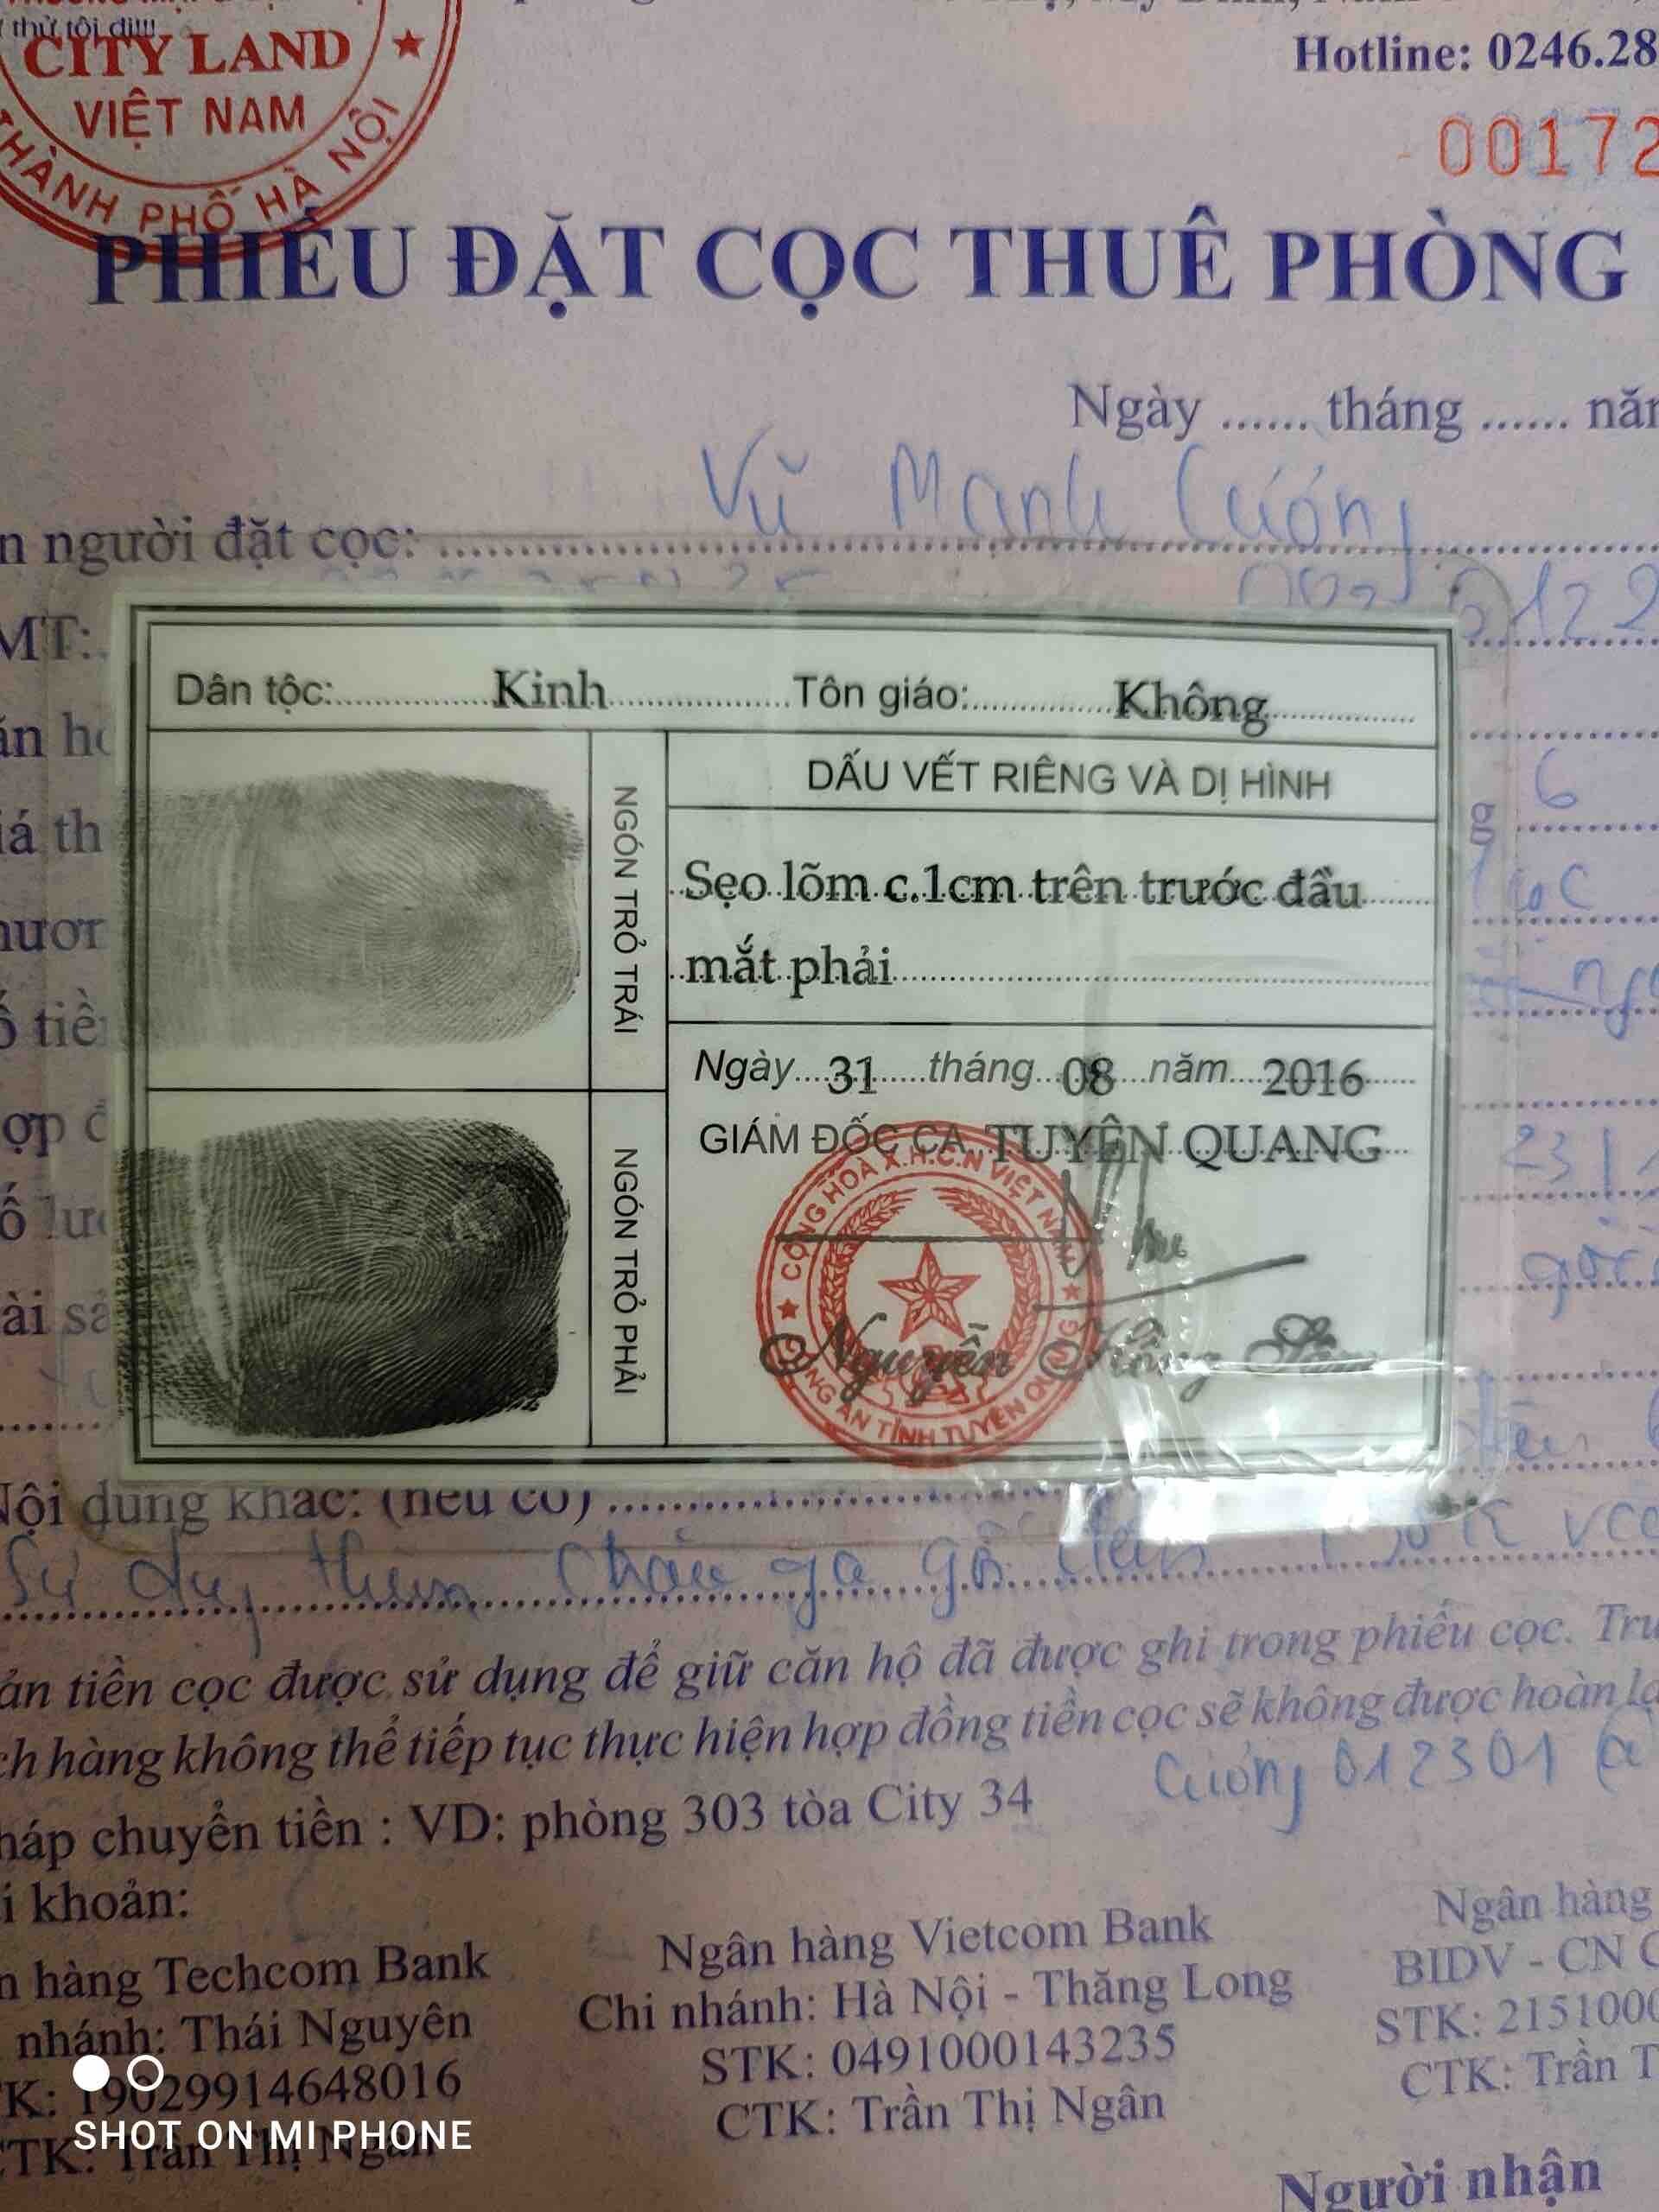 thử tôi đi!!!
CITY LAND
VIỆT NAM
THÀNH PHỐ HÀ NỘI
Hotline: 0246.28
00172
PHIẾU ĐẶT CỌC THUÊ PHÒNG
Ngày ...... tháng ...... năm
n người đặt cọc: Vũ Mạnh Cường
MT:
Dân tộc: Kinh Tôn giáo: Không
DẤU VẾT RIÊNG VÀ DỊ HÌNH
NGÓN TRỎ TRÁI
Sẹo lõm c.1cm trên trước đầu
mắt phải
Ngày 31 tháng 08 năm 2016
GIÁM ĐỐC CA TUYÊN QUANG
NGÓN TRỎ PHẢI
CỘNG HÒA X.H.C.N VIỆT NAM
CÔNG AN TỈNH TUYÊN QUANG
Nguyễn Hồng
ăn hộ
iá th
ố tiề
ợp đ
ài sả
Nội dung khác: (nếu có)
ản tiền cọc được sử dụng để giữ căn hộ đã được ghi trong phiếu cọc. Trư
ch hàng không thể tiếp tục thực hiện hợp đồng tiền cọc sẽ không được hoàn lạ
Cường 012301
háp chuyển tiền : VD: phòng 303 tòa City 34
i khoản:
n hàng Techcom Bank
nhánh: Thái Nguyên
K: 19029914648016
CTK: Trần Thị Ngân
Ngân hàng Vietcom Bank
Chi nhánh: Hà Nội - Thăng Long
STK: 0491000143235
CTK: Trần Thị Ngân
Ngân hàng
BIDV - CN
STK: 2151000
CTK: Trần T
Người nhận
SHOT ON MI PHONE